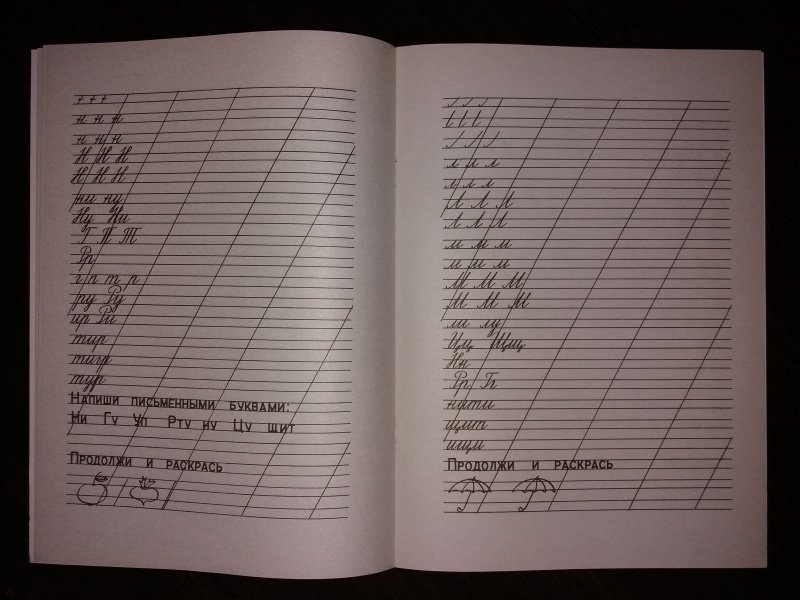 н н н
н н н
Н Н Н
Н Н Н
ни ну
Ну Ни
Г П Т
Рр
г п т р
ру Ру
ир Ри
тир
тигр
тур
Напиши письменными буквами:
Ни Гу Уп Рту ну Цу щит
Продолжи и раскрась
л л л
л л л
Л Л Л
Л Л Л
м м м
м м м
М М М
М М М
ли лу
Цц Щщ
Нн
Рр Гг
нити
щит
ищи
Продолжи и раскрась